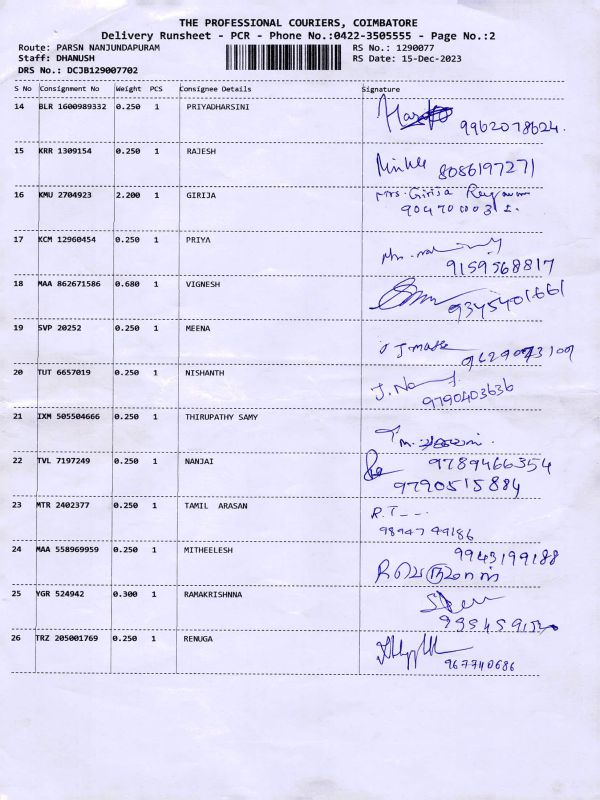 THE PROFESSIONAL COURIERS, COIMBATORE
Delivery Runsheet - PCR - Phone No.:0422-3505555 - Page No.:2
Route: PARSN NANJUNDAPURAM RS No.: 1290077
Staff: DHANUSH RS Date: 15-Dec-2023
DRS No.: DCJB129007702
S No Consignment No Weight PCS Consignee Details Signature
14 BLR 1600989332 0.250 1 PRIYADHARSINI
9962078624.
15 KRR 1309154 0.250 1 RAJESH
8086197271
16 KMU 2704923 2.200 1 GIRIJA Mrs. Girija
17 KCM 12960454 0.250 1 PRIYA
9159568817
18 MAA 862671586 0.680 1 VIGNESH
9345401661
19 SVP 20252 0.250 1 MEENA
20 TUT 6657019 0.250 1 NISHANTH
9790403636
21 IXM 505504666 0.250 1 THIRUPATHY SAMY
22 TVL 7197249 0.250 1 NANJAI 9789466354
9790515884
23 MTR 2402377 0.250 1 TAMIL ARASAN R.T
98947 49186
24 MAA 558969959 0.250 1 MITHEELESH 9943199188
25 YGR 524942 0.300 1 RAMAKRISHNNA
26 TRZ 205001769 0.250 1 RENUGA
967740686